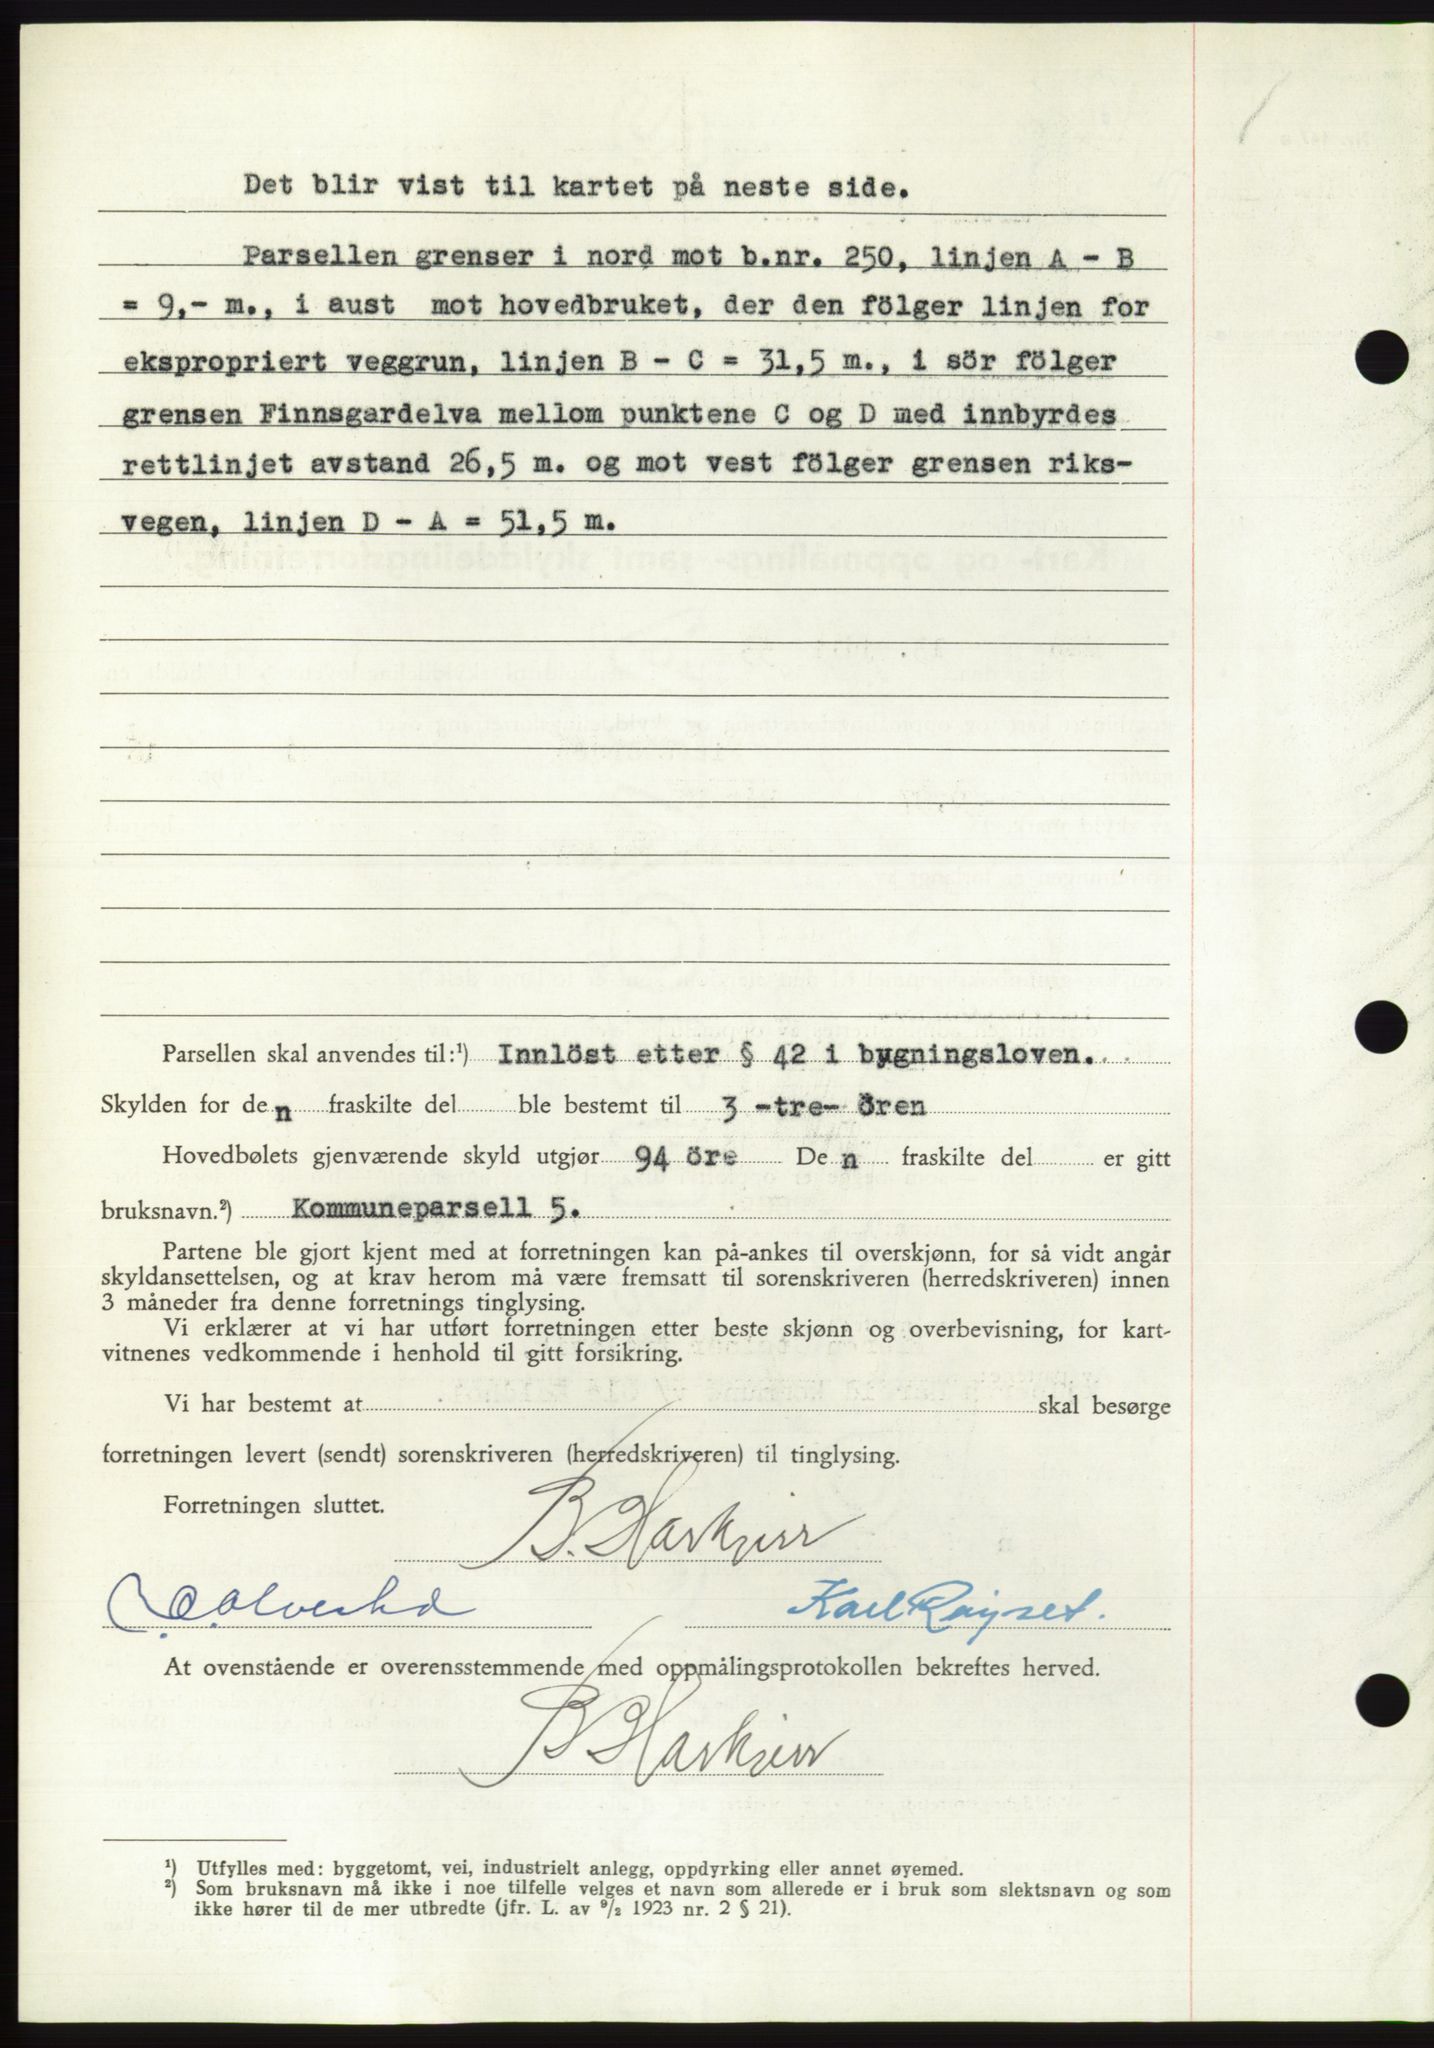 Det blir vist til kartet på neste side.
Parsellen grenser i nord mot b.nr. 250, linjen A - B
= 9,- m., i aust mot hovedbruket, der den fölger linjen for
ekspropriert veggrun, linjen B - C = 31,5 m., i sör fölger
grensen Finnsgardelva mellom punktene C og D med innbyrdes
rettlinjet avstand 26,5 m. og mot vest fölger grensen riks-
vegen, linjen D - A = 51,5 m.
Parsellen skal anvendes til:¹) Innlöst etter § 42 i bygningsloven.
Skylden for den fraskilte del ble bestemt til 3 -tre- ören
Hovedbølets gjenværende skyld utgjør 94 öre Den fraskilte del er gitt
bruksnavn.²) Kommuneparsell 5.
Partene ble gjort kjent med at forretningen kan på-ankes til overskjønn, for så vidt angår
skyldansettelsen, og at krav herom må være fremsatt til sorenskriveren (herredskriveren) innen
3 måneder fra denne forretnings tinglysing.
Vi erklærer at vi har utført forretningen etter beste skjønn og overbevisning, for kart-
vitnenes vedkommende i henhold til gitt forsikring.
Vi har bestemt at skal besørge
forretningen levert (sendt) sorenskriveren (herredskriveren) til tinglysing.
Forretningen sluttet.
Karl Røyset.
At ovenstående er overensstemmende med oppmålingsprotokollen bekreftes herved.
¹) Utfylles med: byggetomt, vei, industrielt anlegg, oppdyrking eller annet øyemed.
²) Som bruksnavn må ikke i noe tilfelle velges et navn som allerede er i bruk som slektsnavn og som
ikke hører til de mer utbredte (jfr. L. av ⁹/₂ 1923 nr. 2 § 21).